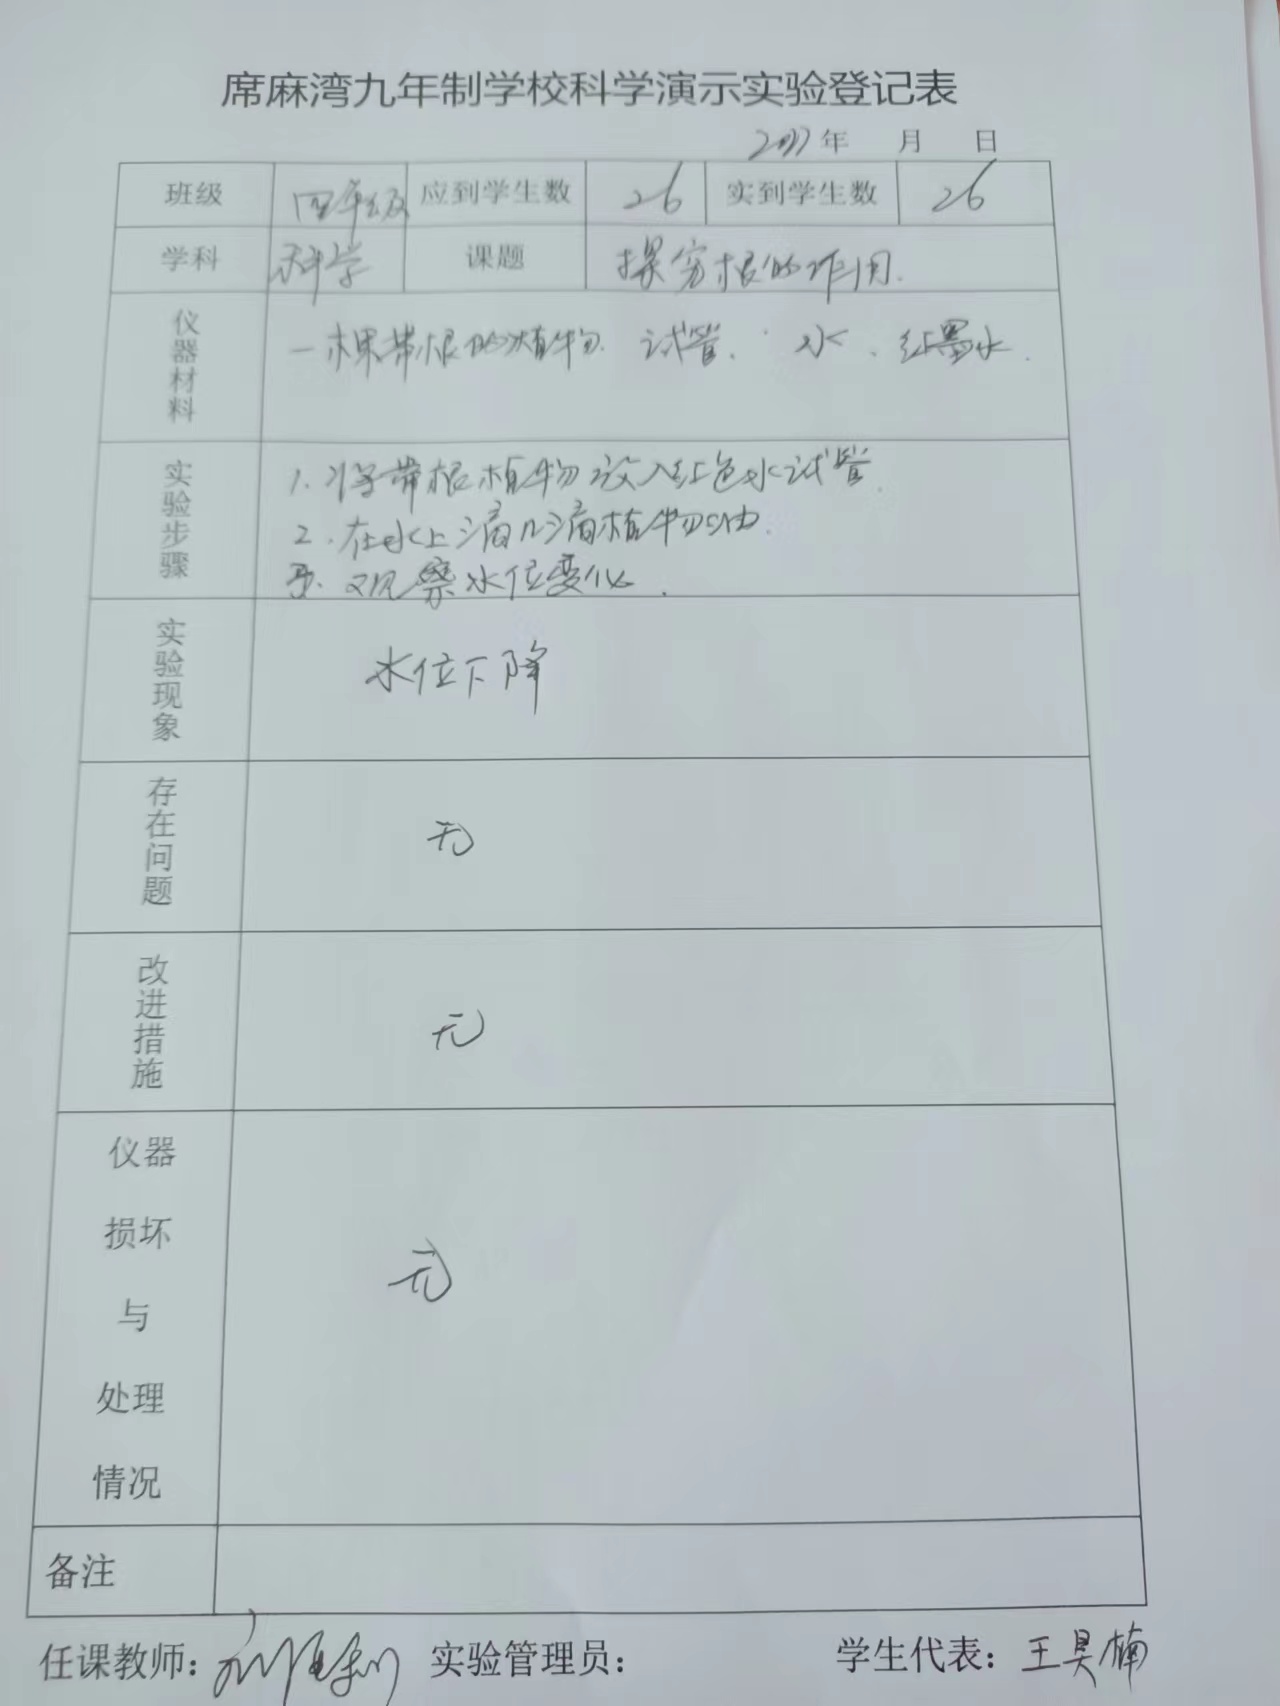 席麻湾九年制学校科学演示实验登记表
年 月 日
班级 四年级 应到学生数 26 实到学生数 26
学科 科学 课题 探究根的作用.
仪器材料 一棵带根的植物. 试管. 水、红墨水.
实验步骤
1. 将带根植物放入红色水试管.
2. 在水上滴几滴植物油.
3. 观察水位变化.
实验现象 水位下降
存在问题 无
改进措施 无
仪器
损坏
与
处理
情况
无
备注
任课教师: 实验管理员: 学生代表: 王昊楠